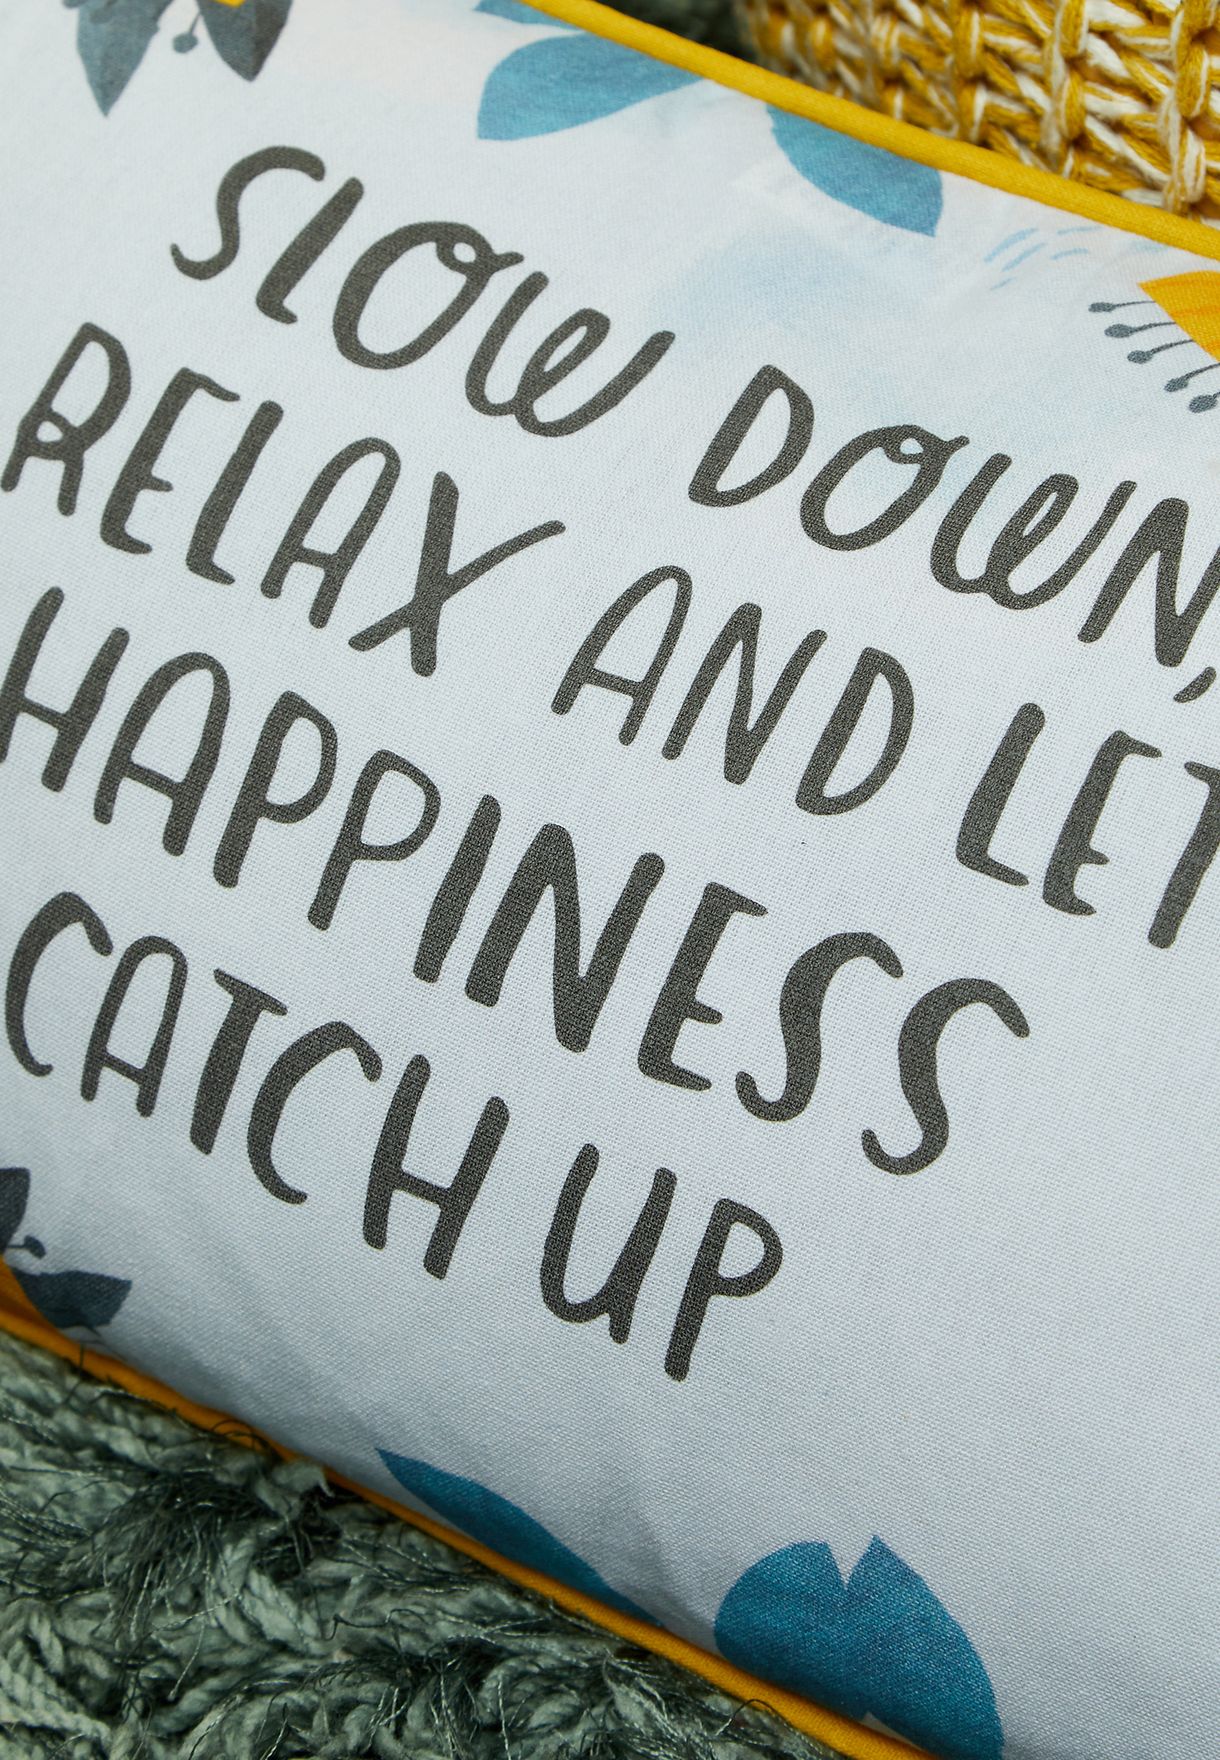 SLOW DOWN,
RELAX AND LET
HAPPINESS
CATCH UP